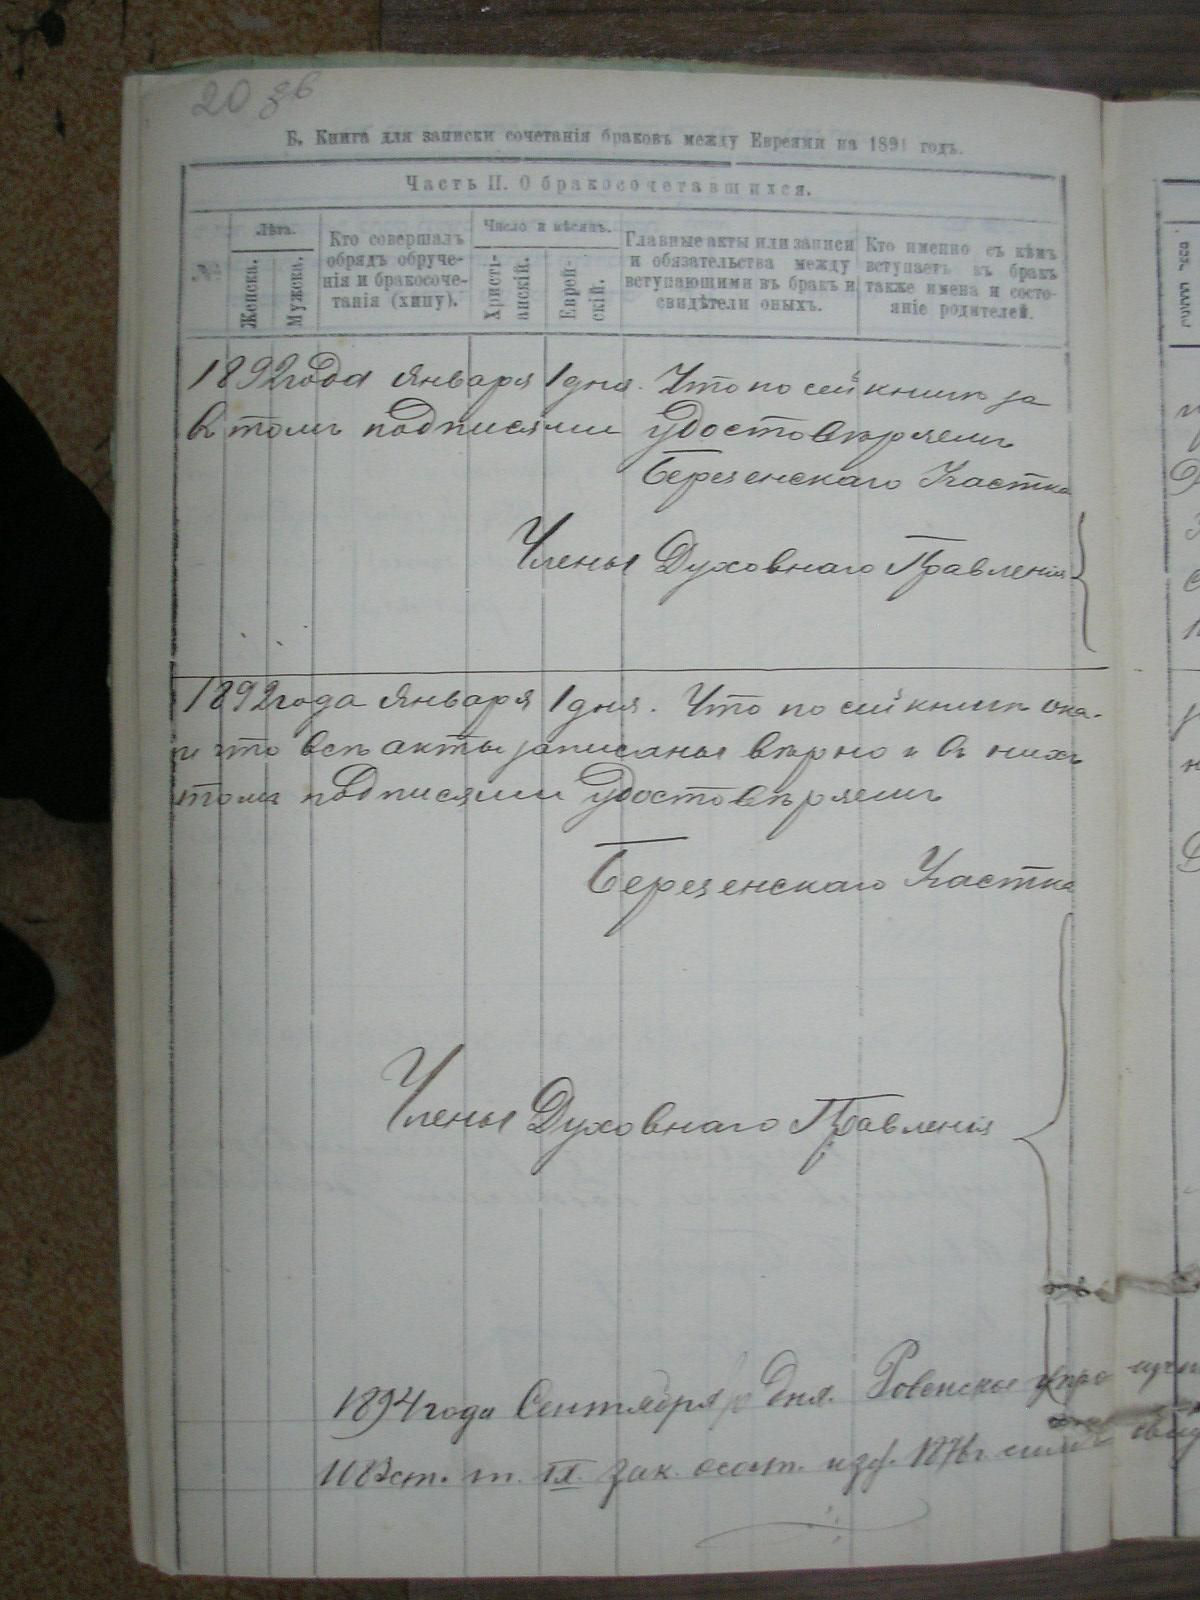 20 зв
Б. Книга для записки сочетанія браковъ между Евреями на 1891 годъ.
Часть II. О бракосочетавшихся.
№
Лѣта.
Женска.
Мужска.
Кто совершалъ
обрядъ обруче-
нія и бракосоче-
танія (хипу).
Число и мѣсяцъ.
Христі-
анскій.
Еврей-
скій.
Главные акты или записи
и обязательства между
вступающими въ бракъ и
свидѣтели оныхъ.
Кто именно съ кѣмъ
вступаетъ въ бракъ
также имена и состо-
яніе родителей.
1892 года Января 1 дня. Что по сей книгѣ за
въ томъ подписями удостовѣряемъ
Березенскаго Участка
Члены Духовнаго Правленія
1892 года Января 1 дня. Что по сей книгѣ ока-
и что всѣ акты записаны вѣрно и въ нихъ
томъ подписями удостовѣряемъ
Березенскаго Участка
Члены Духовнаго Правленія
1894 года Сентября дня. Ровенское
1083 ст. т. IX зак. о сост. изд. 1876 г.